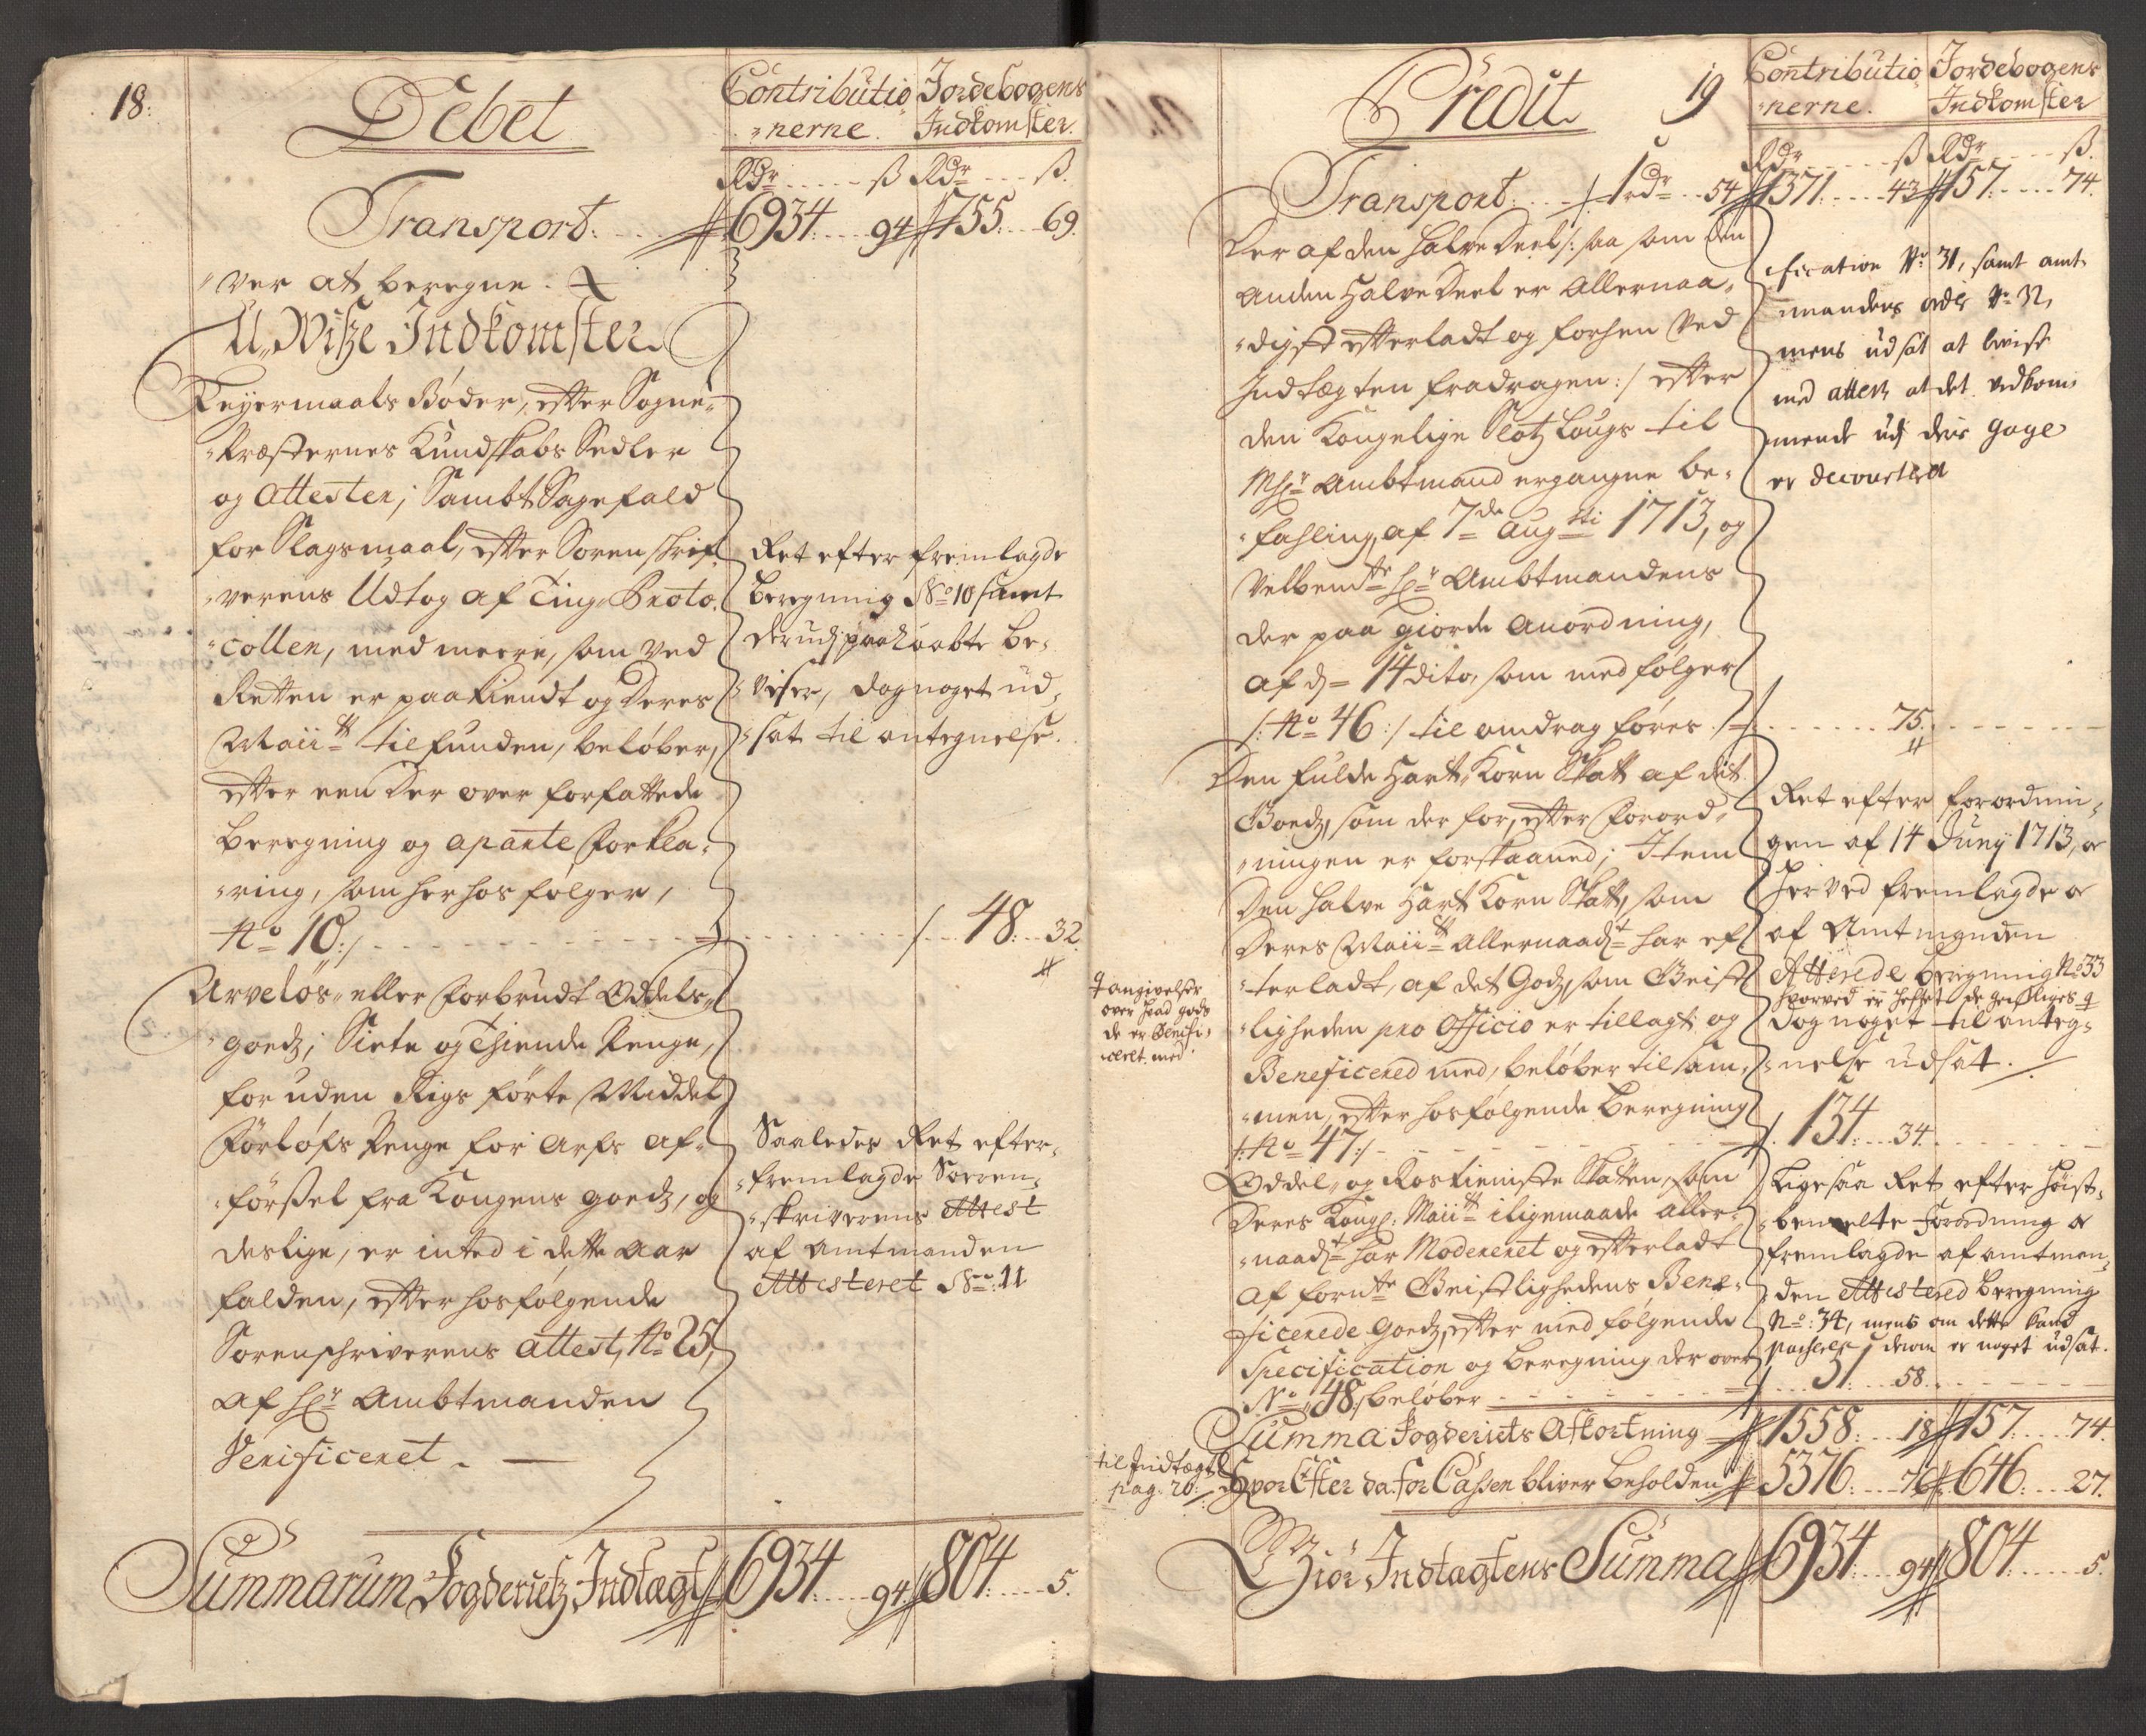 18:
Debet
Contributio Jordebogens
"nerne. Indkomster.
Rdr ..... ß Rdr ... ß.
Transport: .... 6934: ... 94 755: ... 69.
"ver at beregne.
U-Viße Indkomster
Leyermaals Bøder, efter Sogne-
"Præsternes Kundskabs Sedler
og Attester; Sambt Sagefald
for Slagsmaal, efter Sorenskrif-
"verens Udtog af Ting-Proto-
"collen, med meere, som ved
Retten er paakiendt og Deres
Maiitt tilfunden, beløber,
efter een der over forfattede
beregning og aparte forkla-
"ring, som her hos følger,
No 10:/ ............ /... 48: .. 32
Ret efter fremlagde
beregning No 10 samt
derudj paaraabte be-
"viser, dog noget ud-
"sat til antegnelse.
Arveløs- eller forbrudt Oddels-
"goedz; Siette og Thiende Penge,
for uden Rigs førte Middel
Førløfs Penge for Arfs af-
"førßel fra Kongens goedz, og
deslige, er inted i dette Aar
falden, efter hosfølgende
Sorenschriverens attest, No 25,
af Hr Ambtmanden
Verificeret. —
Saaledes Ret efter-
"fremlagde Soeren-
"skriverens Attest
af amtmanden
Attesteret No: 11
Summarum Fogderietz Indtægt 6934: ... 94. 804: .... 5.
Credit 19
Contributio Jordebogens
"nerne. Indkomster
Rdr ..... ß Rdr .... ß.
Transport: .. /. 1 rdr .. 54 1371: .... 43 157: .... 74.
Der af den halve Deel /: saa som den
anden Halve Deel er Allernaa-
"digst efterladt og forhen ved
Indtægten fradragen :/ efter
den Kongelige Slotz Lougs til
Hr Ambtmand ergangne be-
"fahling, af 7de Augsti 1713, og
Velbemte Hr Ambtmandens
der paa giorde Anordning,
af d= 14 dito, som med følger
/: No 46 :/ til omdrag føres ./. ...... 75. ......
"fication No 31, samt amt-
mandens ordre No 32,
mens udsat at bevise
med attest at det vedkom-
mende udj deris gage
er decourtered
Den fulde Hart-Korn Skatt af det
Goedz, som der for, efter Forord-
"ningen er forskaaned; Item
Den halve Hart Korn Skatt, som
Deres Maiitt Allernaadt har ef-
"terladt, af det Godz, som Geist-
"ligheden pro Officio er tillagt og
Beneficered med, beløber til sam-
"men, efter hosfølgende beregning
/: No 47:/ ........ /. 134: ... 34. ......
Ret efter forordnin-
gen af 14 Juny 1713, og
her ved fremlagde og
af Amtmanden
Atterede beregning No 33
hvorved er heftet de geistliges
dog noget til anteg-
"nelse udsat.
angivelser
over hvad gods
de er Benefi-
ceret med.
Oddel- og Rostieniste Skatten, som
Deres Kongl: Maiitt iligemaade Aller-
"naadt har Modereret og efterladt
af fornte Geistlighedens Bene-
"ficerede goedz, efter med følgende
Specification og beregning der over
No 48, beløber ........ /. ... 51: ... 58. ......
Ligesaa Ret efter høist-
"bemelte Forordning og
fremlagde af amtman-
den Attestered beregning
No: 34, mens om dette kand
passeres, derom er noget udsat.
Summa Fogderiets Afkortning 1558: ... 18 157: ... 74.
til Indtægt
pag. 20:
Hvor Efter da for Cassen bliver beholden 5376: ... 76 646: ... 27.
Giør Indtægtens Summa 6934: ... 94 804: ..... 5.